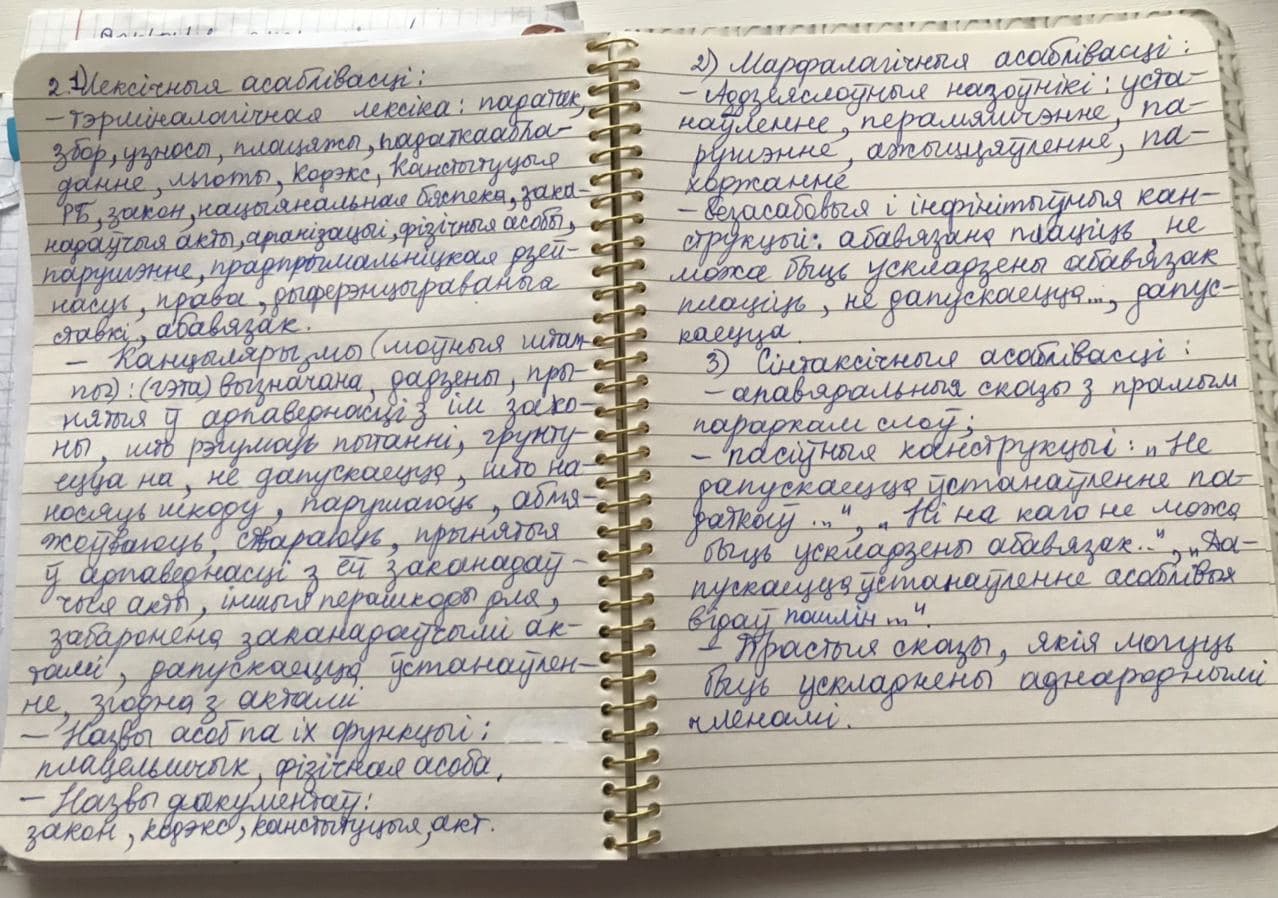 2.1) Лексічныя асаблівасці:
– тэрміналагічная лексіка: падатак,
збор, узносы, плацяжы, падаткаабкла-
данне, льготы, кодэкс, Канстытуцыя
РБ, закон, нацыянальная бяспека, зака-
надаўчыя акты, арганізацыі, фізічныя асобы,
парушэнне, прадпрымальніцкая дзей-
насць, права, дыферэнцыраваныя
стаўкі, абавязак.
– Канцылярызмы (моўныя штам
пы): (гэта) вызначана, дадзены, пры-
нятыя ў адпаведнасці з ім зако-
ны, што рэгулююць пытанні, грунту-
ецца на, не дапускаецца, што на-
носяць шкоду, парушаюць, абмя-
жоўваюць, ствараюць, прынятыя
ў адпаведнасці з ёй заканадаў-
чыя акты, іншыя перашкоды для,
забаронена заканадаўчымі ак-
тамі, дапускаецца ўстанаўлен-
не, згодна з актамі
– Назвы асоб па іх функцыі:
плацельшчык, фізічная асоба,
– Назвы дакументаў:
закон, кодэкс, канстытуцыя, акт.
2) Марфалагічныя асаблівасці:
– Аддзеяслоўныя назоўнікі: уста-
наўленне, перамяшчэнне, па-
рушэнне, ажыццяўленне, па-
ходжанне
– безасабовыя і інфінітыўныя кан-
струкцыі: абавязана плаціць, не
можа быць ускладзены абавязак
плаціць, не дапускаецца..., дапус-
каецца.
3) Сінтаксічныя асаблівасці:
– апавядальныя сказы з прамым
парадкам слоў;
– пасіўныя канструкцыі: „Не
дапускаецца ўстанаўленне па-
даткоў ...", „Ні на каго не можа
быць ускладзены абавязак...", „Да-
пускаецца ўстанаўленне асаблівых
відаў пошлін ...".
– Простыя сказы, якія могуць
быць ускладнены аднароднымі
членамі.